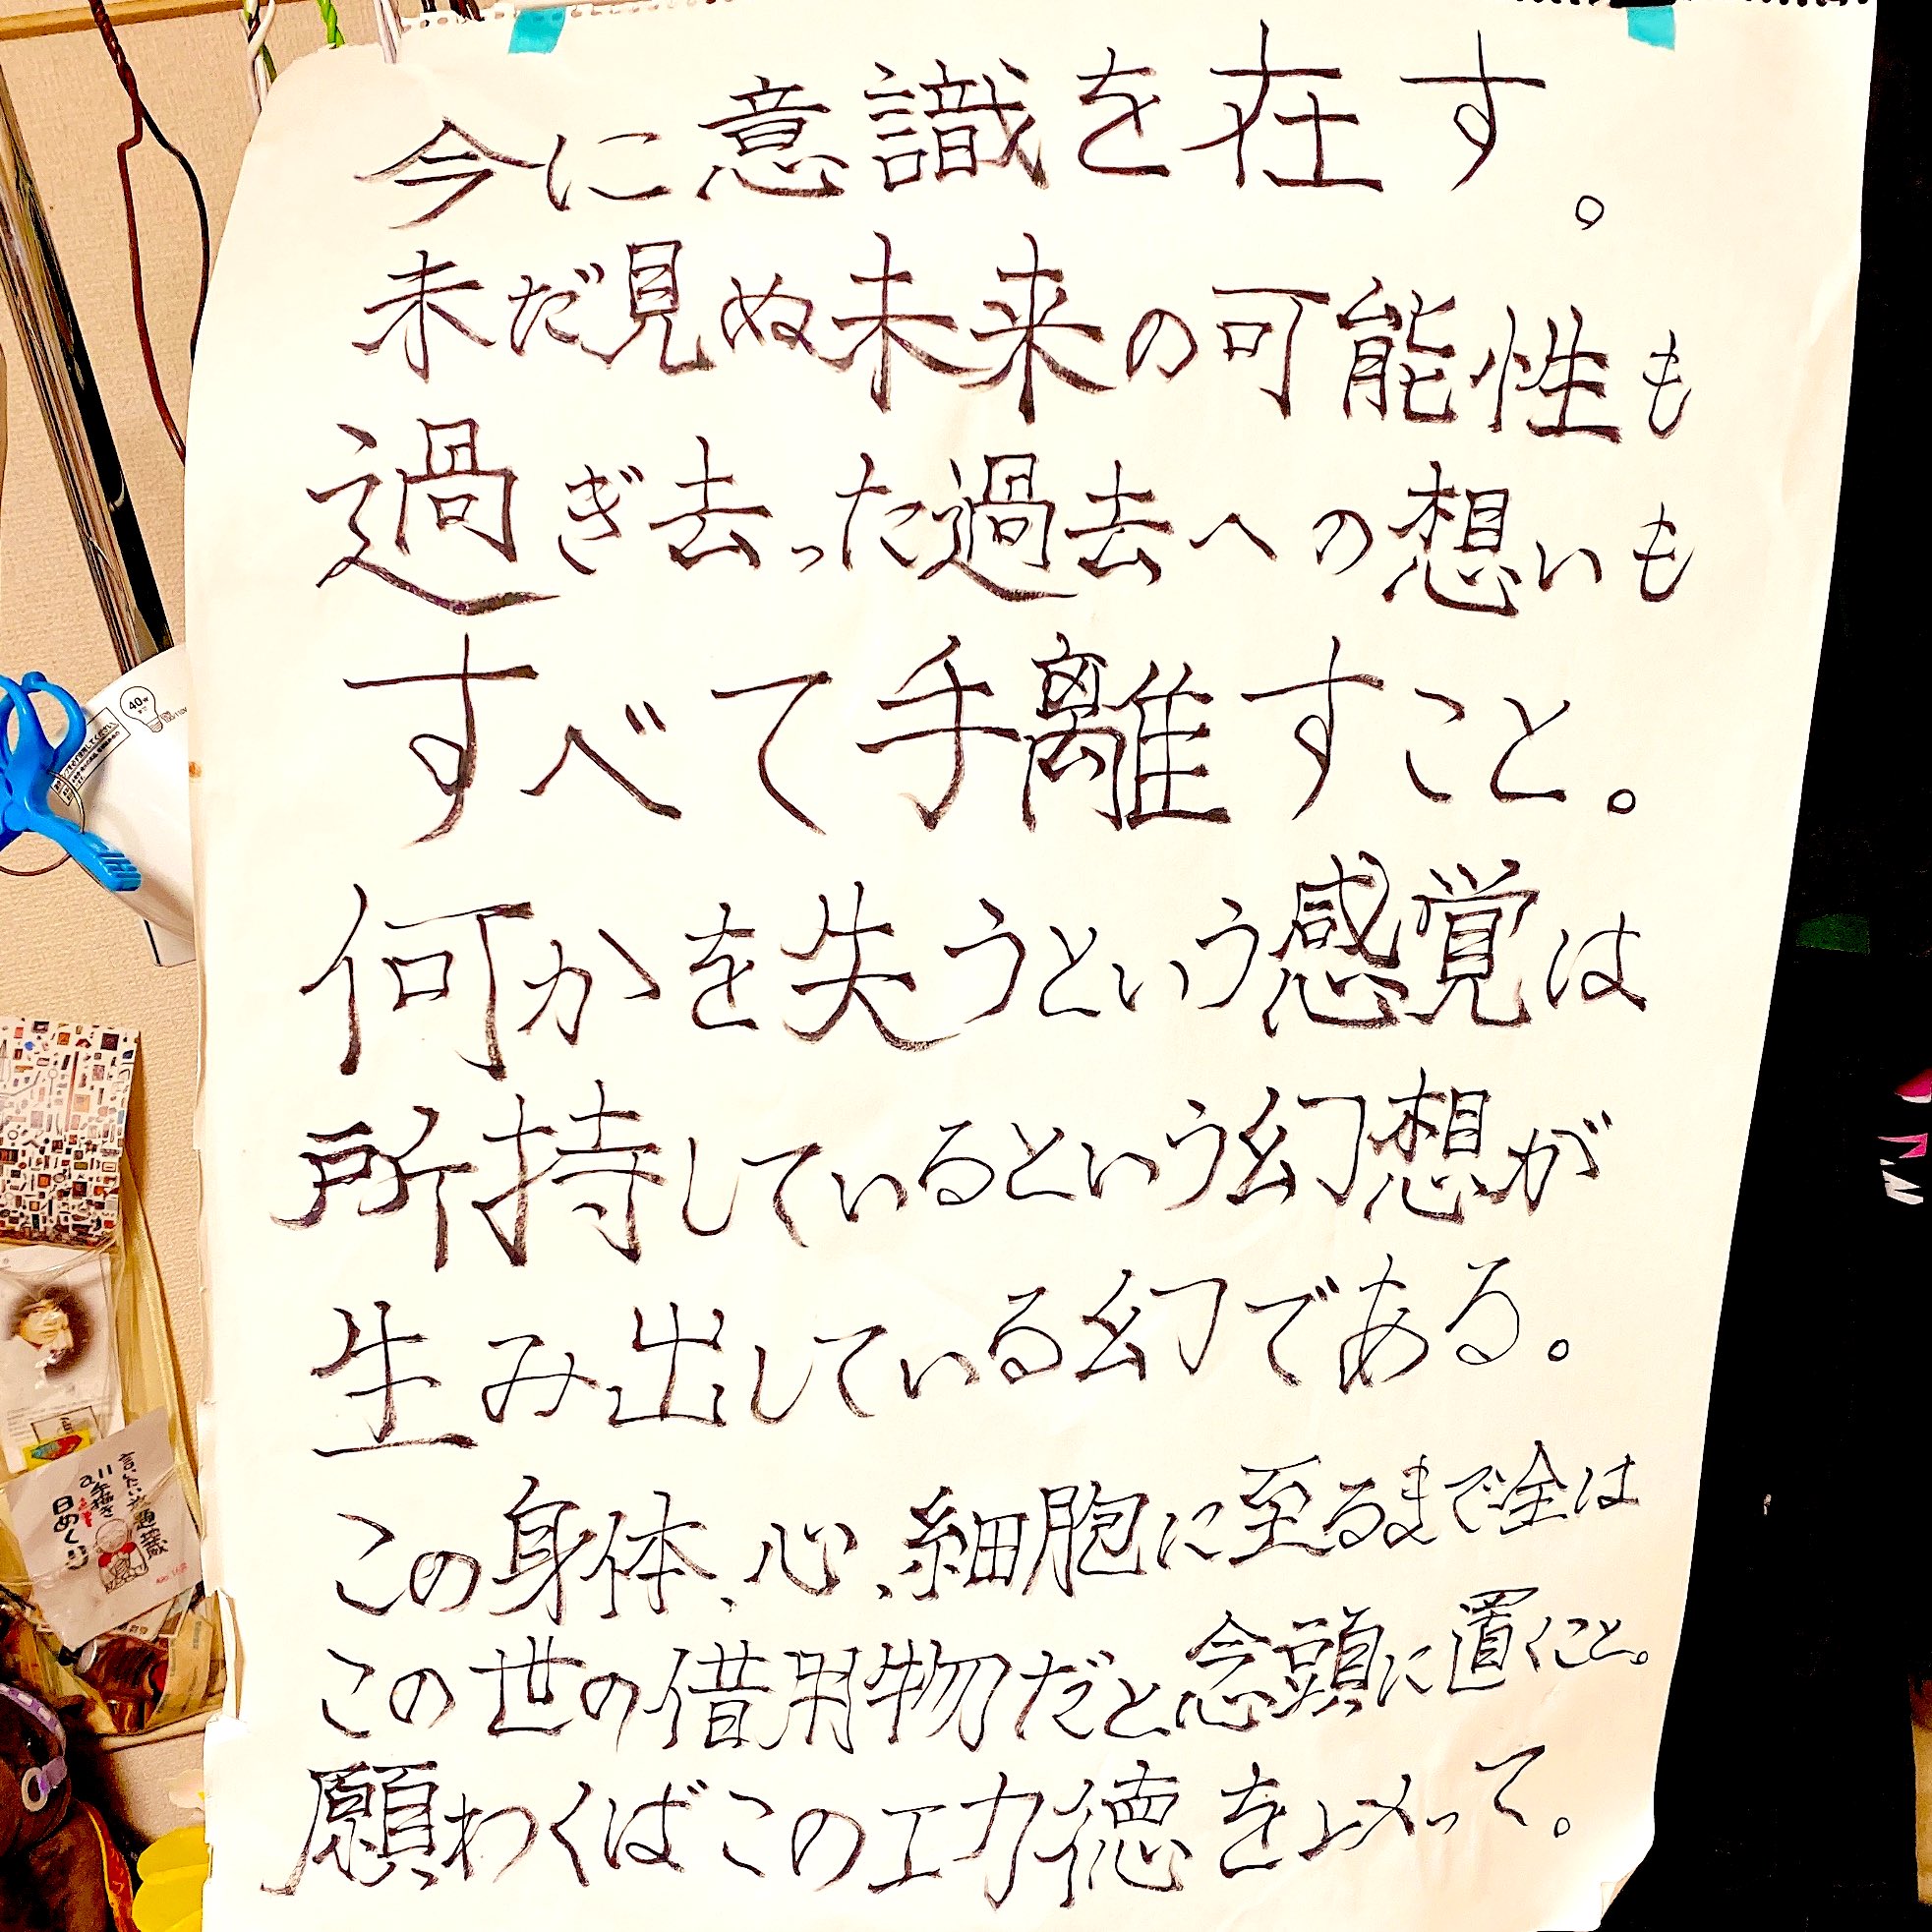 今に意識を在す。
未だ見ぬ未来の可能性も
過ぎ去った過去への想いも
すべて手離すこと。
何かを失うという感覚は
所持しているという幻想が
生み出している幻である。
この身体、心、細胞に至るまで全は
この世の借用物だと念頭に置くこと。
願わくばこの功徳を以って。
40W
手描き
日めくり